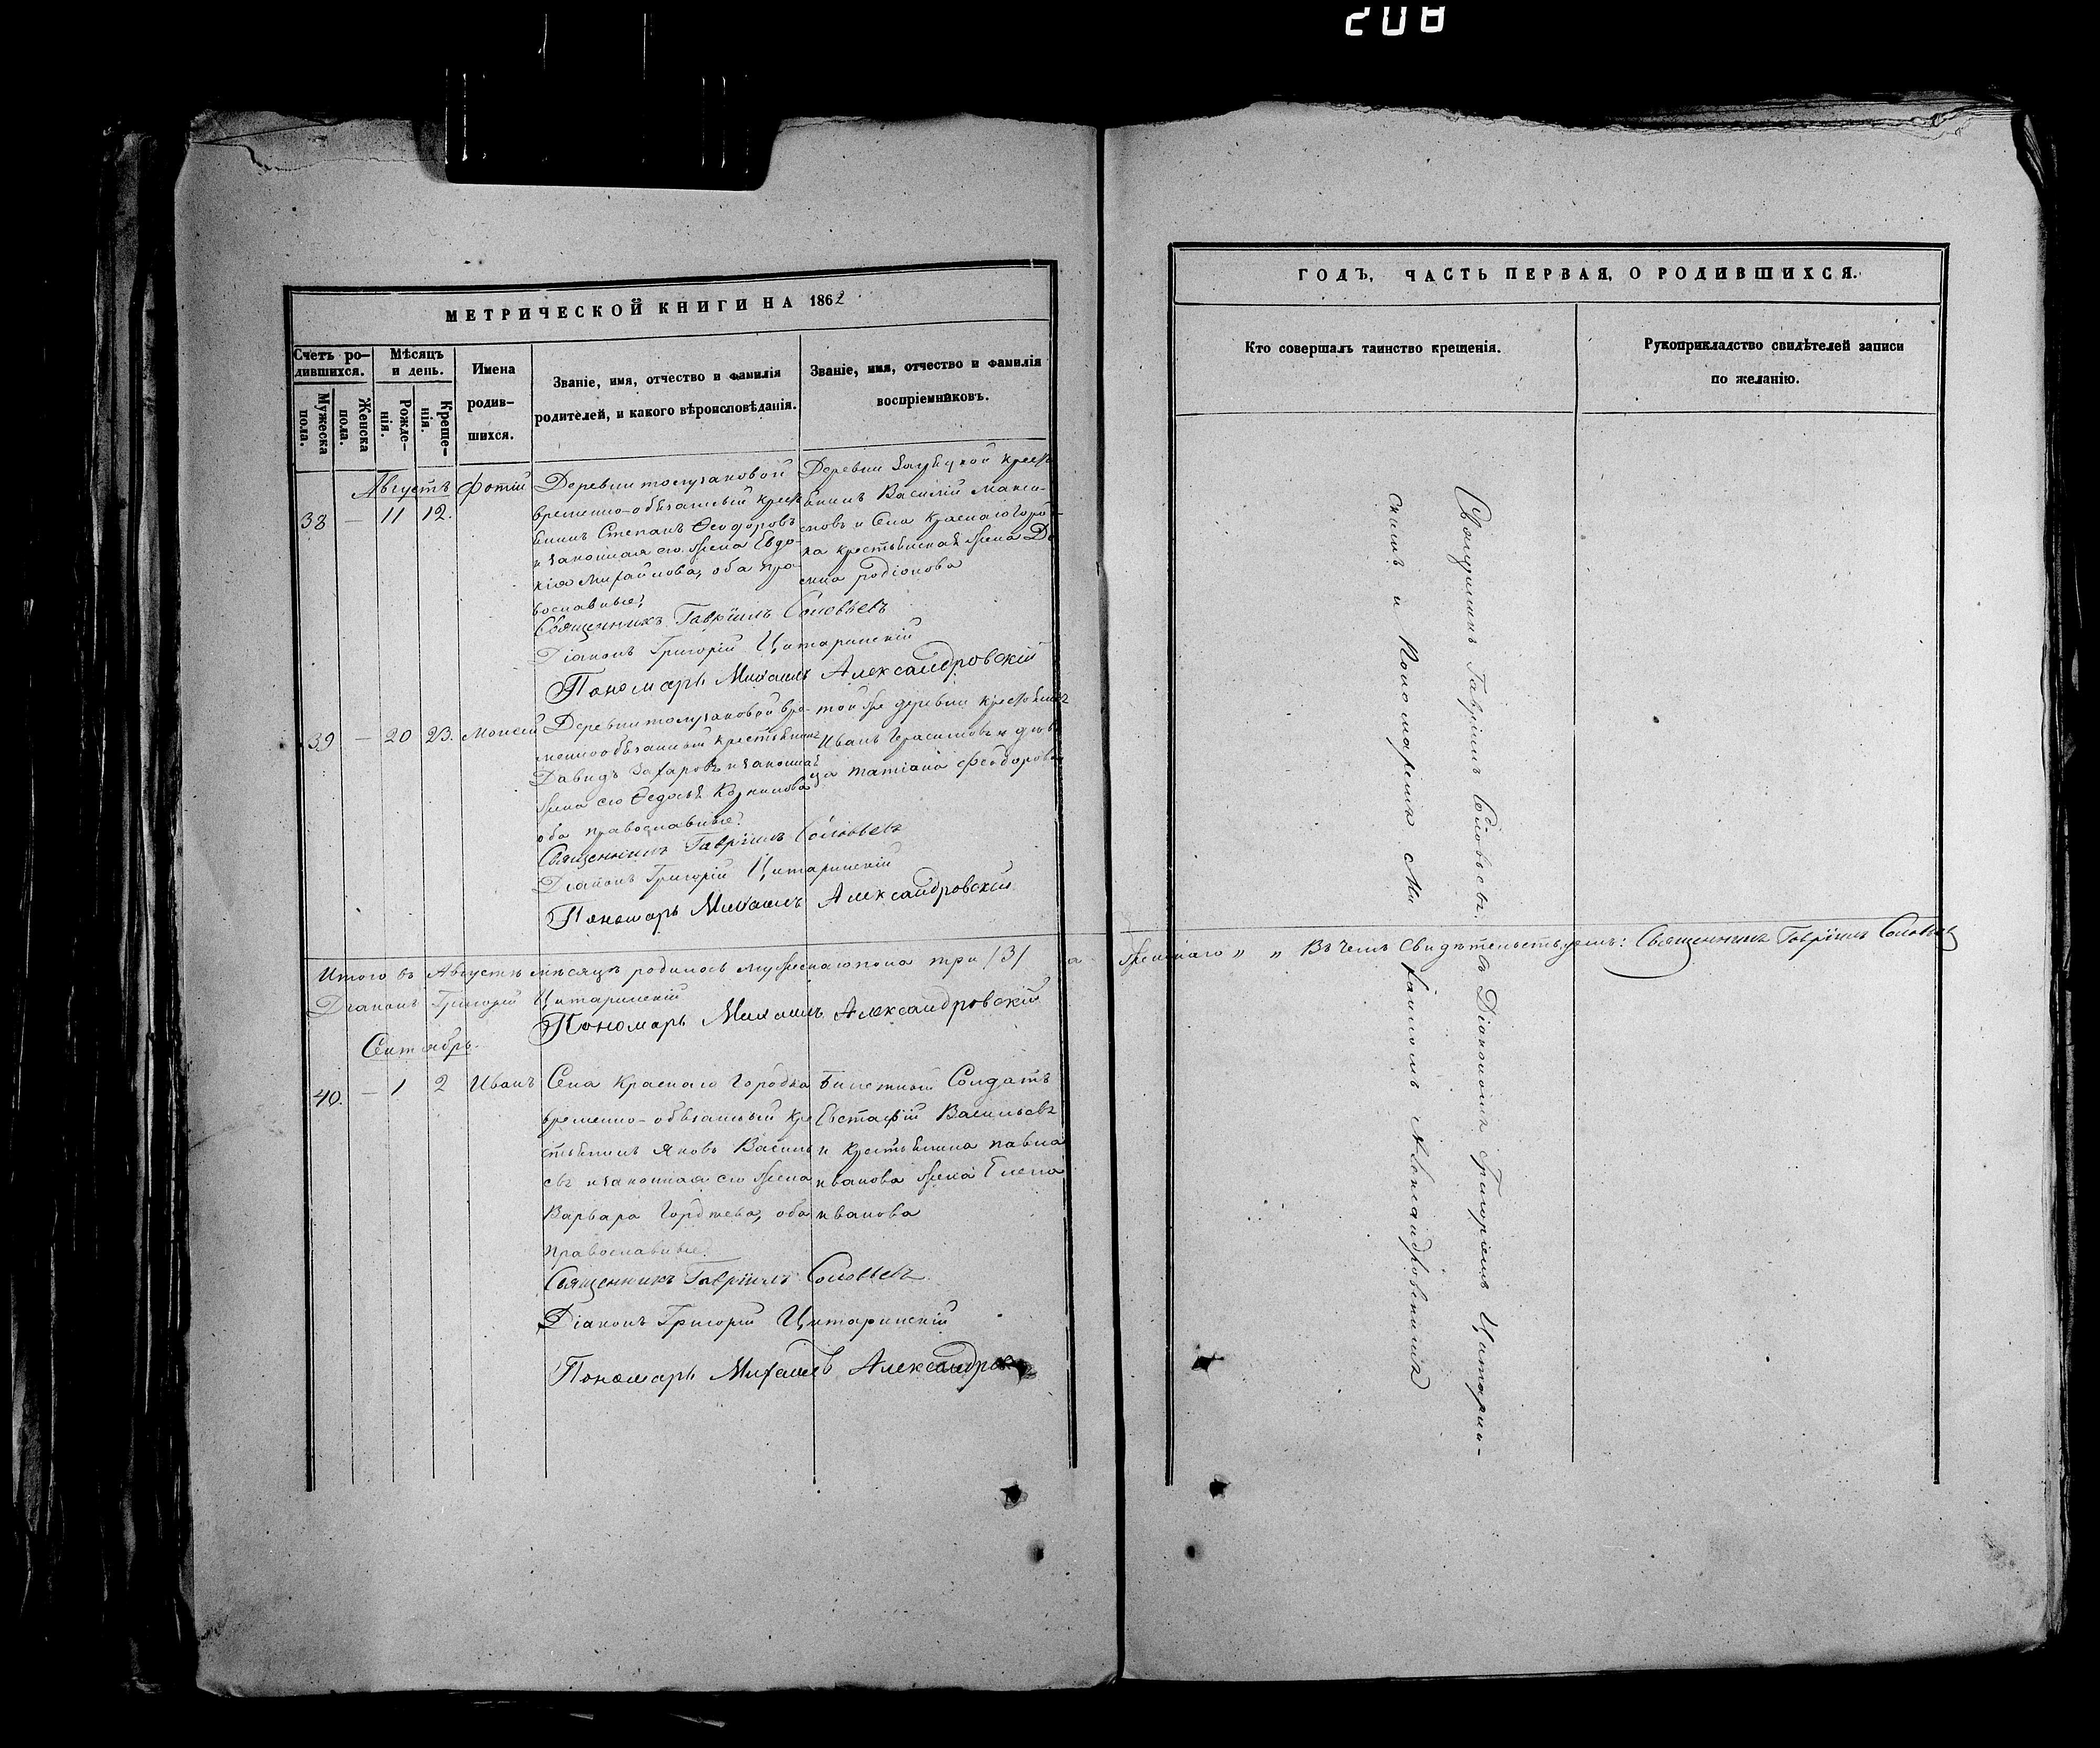 208
МЕТРИЧЕСКОЙ КНИГИ НА 1862
Счетъ ро-
дившихся.
Мужеска
пола.
Женска
пола.
Мѣсяцъ
и день.
Рожде-
нія.
Креще-
нія.
Имена
родив-
шихся.
Званіе, имя, отчество и фамилія
родителей, и какого вѣроисповѣданія.
Званіе, имя, отчество и фамилія
воспріемниковъ.
Августъ
38 — 11 12. Фотій
Деревни
временно-обязанный крест
янинъ Степанъ Ѳеодоровъ
и законная его жена Евдо-
кія Михайлова, оба пра-
вославные;
Деревни крест
янинъ Василій Макси-
мовъ и Села Краснаго Город-
ка крестьянская жена
родіонова
Священникъ Гавріилъ Соловьевъ
Діаконъ Григорій Цитаринскій
Пономарь Михаилъ Александровскій
39 — 20 23. Моисей
Деревни вре-
меннообязанный крестьянинъ
Давидъ Захаровъ и законная
жена его Ѳедосья
оба православные;
той же деревни крестьянинъ
Иванъ Герасимовъ и
татіана Феодорова
Священникъ Гавріилъ Соловьевъ
Діаконъ Григорій Цитаринскій
Пономарь Михаилъ Александровскій
Итого въ Августѣ мѣсяцѣ родилось мужескаго пола три /3/ а
Діаконъ Григорій Цитаринскій
Пономарь Михаилъ Александровскій
Сентябрь.
40. — 1 2 Иванъ
Села Краснаго Городка
временно-обязанный кре
стьянинъ Яковъ Василь
евъ и законная его жена
Варвара Гордѣева, оба
православные.
Билетной Солдатъ
Евстафій Васильевъ
и крестьянина павла
иванова жена Елена
иванова
Священникъ Гавріилъ Соловьевъ.
Діаконъ Григорій Цитаринскій
Пономарь Михаилъ
ГОДЪ, ЧАСТЬ ПЕРВАЯ, О РОДИВШИХСЯ.
Кто совершалъ таинство крещенія.
Рукоприкладство свидѣтелей записи
по желанію.
Священникъ Гавріилъ Соловьевъ съ Діакономъ Григоріемъ Цитарин-
скимъ и Пономаремъ Михаиломъ Александровскимъ
женскаго „ „ Въ чемъ Свидѣтельствуемъ: Священникъ Гавріилъ Соловьевъ